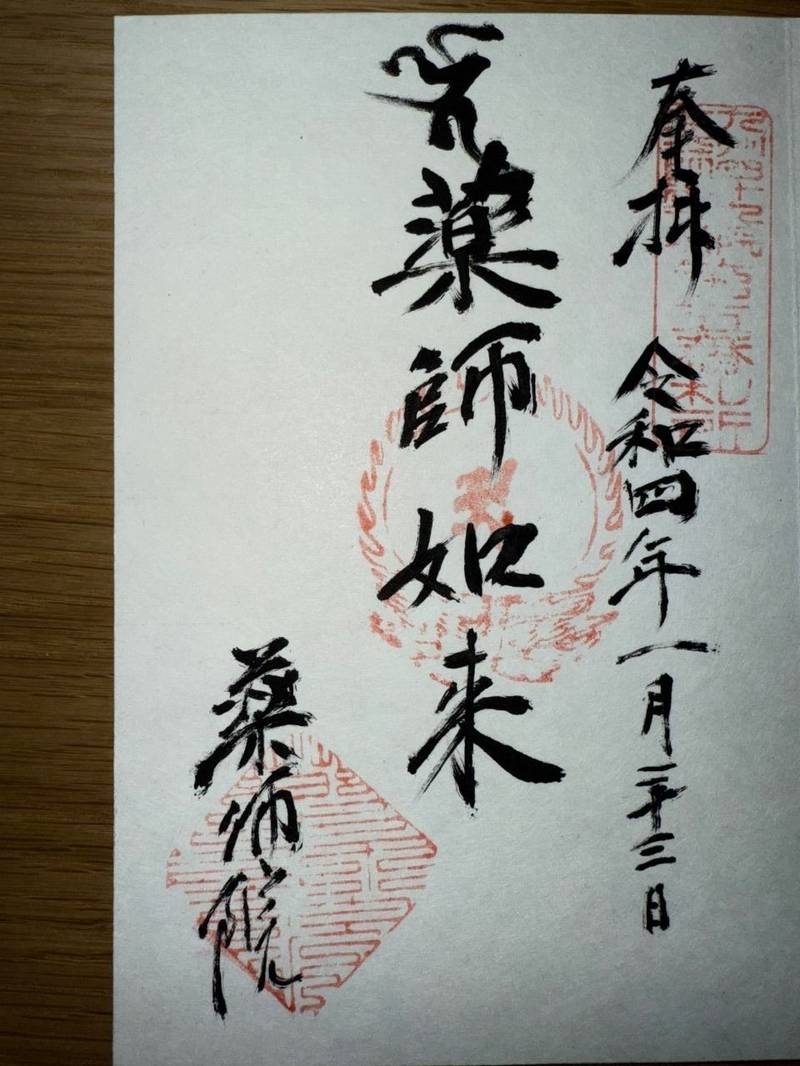 奉拝 令和四年一月二十三日
薬師如来
薬師院